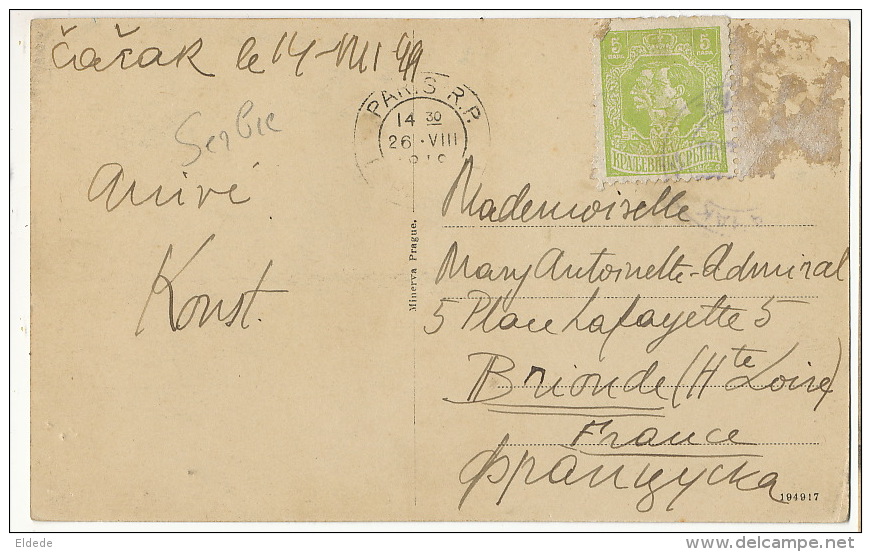 Čačak le 14-VIII 
PARIS R.P.
14 30
26 VIII
Serbie
Arrivé
Konst.
Minerva Prague.
5 5
ПАРА ПАРА
КРАЉЕВИНА СРБИЈА
Mademoiselle
Mary Antoinette-Admiral
5 Place Lafayette 5
Brioude (Hte Loire)
France
Француска
194917
Eldede
www.delcampe.net